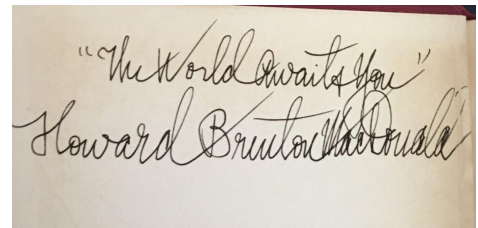 "The World Awaits You"
Howard Brenton MacDonald